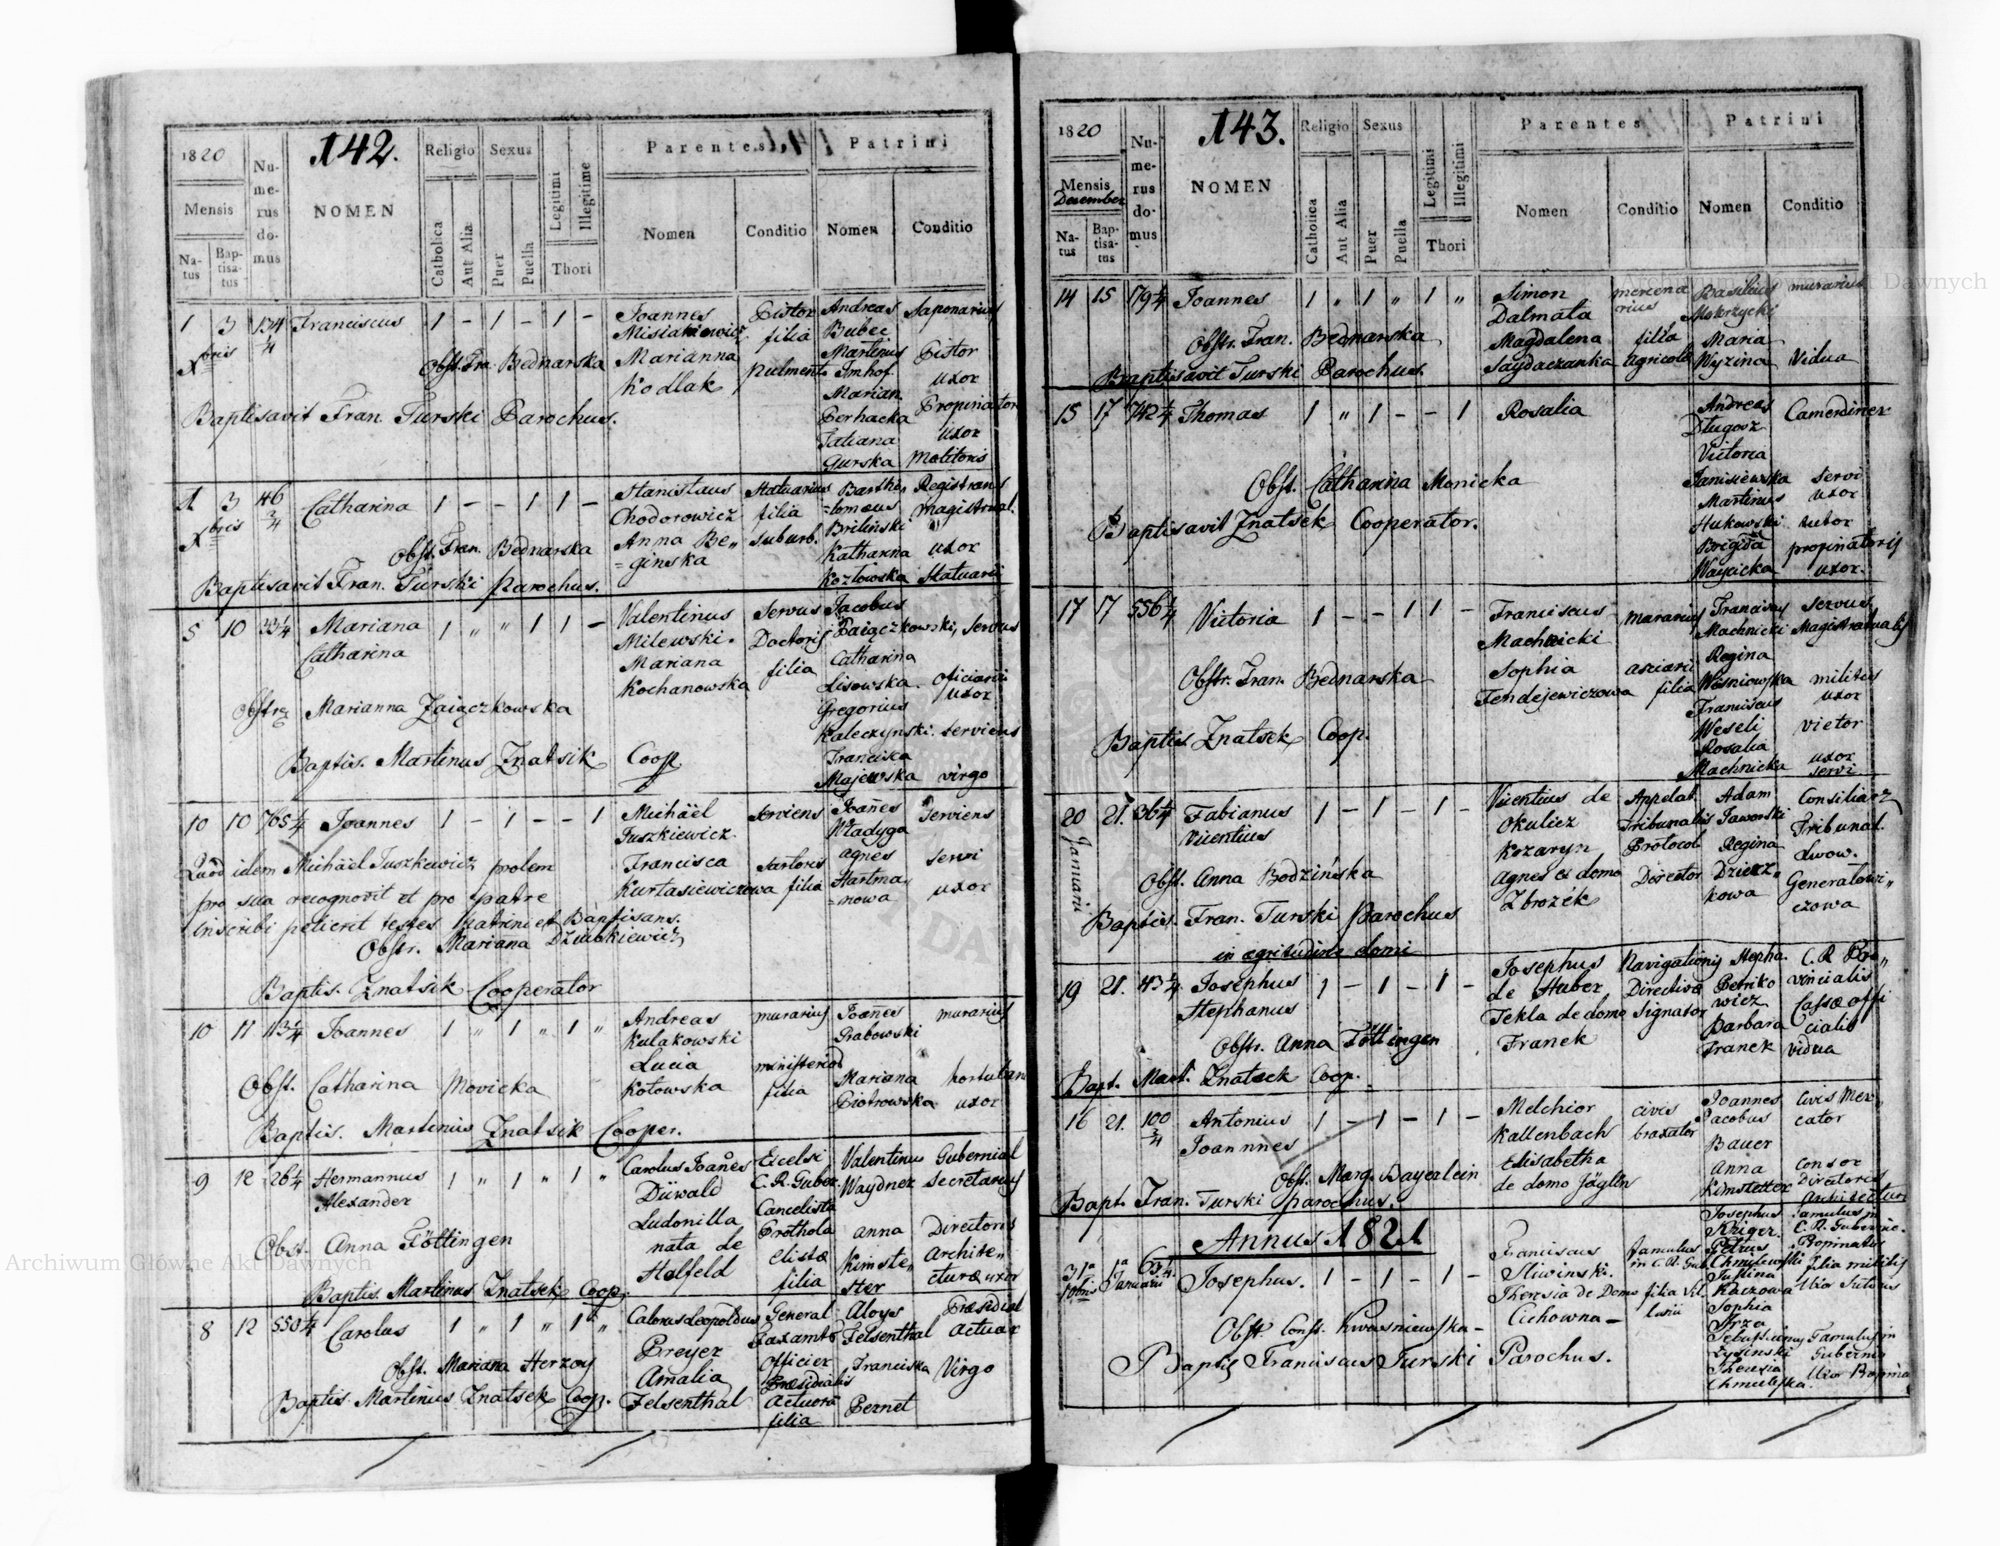 142.
1820
Numerus domus
NOMEN
Religio
Sexus
Legitimi
Illegitime
Parentes
Patrini
Mensis
Catholica
Aut Alia
Puer
Puella
Thori
Nomen
Conditio
Nomen
Conditio
Natus
Baptisatus
1 3 134/4 Franciscus 1 - 1 - 1 - Joannes Pistor Andreas Saponarius
Xbris
filia Bubec
Martinus Pistor
Obst. Fra. Bednarska Marianna Imhof uxor
Kodlak Marian
Baptisavit Fran. Turski Parochus. Perhacka Propinator
Tatiana uxor
Gurska Molitoris
1 3 46 3/4 Catharina 1 - - 1 1 - Stanislaus Statuarius Bartho= Registrans
Xbris
Chodorowicz filia =lomæus magistrual.
Anna Be„ suburb. Brilinski
Obst. Fran. Bednarska =ginska Katharina uxor
Baptisavit Fran. Turski Parochus. Kozłowska Statuarii
5 10 33/4 Mariana 1 „ „ 1 1 - Valentinus Servus Jacobus
Catharina Milewski. Doctoris Zaiączkowski, Servus
Mariana filia Catharina
Kochanowska Lisowska. Oficiarii
uxor
Obstrz Marianna Zaiączkowska Gregorius
Kaleczynski. serviens
Baptis. Martinus Znatsik Coop Francisca
Majewska virgo
10 10 765/4 Joannes 1 - 1 - - 1 Michäel Serviens Joañes Serviens
Tuszkiewicz. Władyga
Quod idem Michäel Tuszkiewicz prolem Francisca Sartoris Agnes servi
pro sua recognovit et pro patre Kurtasiewiczowa filia Hartma„ uxor
=nowa
inscribi petierit testes Patrini et Baptisans.
Obstr. Mariana Dziubkiewicz
Baptis. Znatsik Cooperator
10 11 113/4 Joannes 1 „ 1 „ 1 „ Andreas murarius Joañes murarius
Kulakowski Grabowski
Lucia
Obst. Catharina Movicka Kotowska filia Mariana
Piotrowska uxor
Baptis. Martinus Znatsik Cooper.
9 12 26/4 Hermannus 1 „ 1 „ 1 „ Carolus Joañes Excelsi Valentinus Gubernial
Alexander Düwald C. R. Guber. Waydner Secretarius
Ludonilla Cancelista
Obst. Anna Föttingen nata de Prothoko anna Directoris
Helfeld elistæ Kimste„ Archite„
filia ster cturæ uxor
Baptis. Martinus Znatsek Coop.
8 12 550/4 Carolus 1 „ 1 „ 1 „ Carolus Leopoldus General Aloys Præsidial
Preyer Taxamts Felsenthal Actuar
Obst. Mariana Herzog Amalia Officier Franciska Virgo
Præsidialis
Baptis. Martinus Znatsek Coop. Felsenthal Actuora Pernet
filia
143.
1820
Numerus domus
NOMEN
Religio
Sexus
Legitimi
Illegitimi
Parentes
Patrini
Mensis
December
Catholica
Aut Alia
Puer
Puella
Thori
Nomen
Conditio
Nomen
Conditio
Natus
Baptisatus
14 15 179/4 Joannes 1 „ 1 „ 1 „ Simon mercenarius Basilius murarius
Dalmata Mokrzycki
Obstr. Fran. Bednarska Magdalena filia Maria
Saydaczanka agricolæ Wyzina Vidua
Baptisavit Turski Parochus.
15 17 742/4 Thomas 1 „ 1 - - 1 Rosalia Andreas Camerdiner
Długosz
Victoria
Obst. Catharina Monicka Janisiewska servi
Martinus uxor
Hukowski tutor
Baptisavit Znatsek Cooperator. Brigida propinatoris
Waycicka uxor.
17 17 556/4 Victoria 1 - - 1 1 - Franciscus murarius Franciscus servus
Machnicki Machnicki Magistratualis
Regina
Obstr. Fran. Bednarska Sophia asciarii Wisniowska militis
Fendejewiczowa filia uxor
Franciscus
Weseli vietor
Baptis. Znatsek Coop. Rosalia uxor
Machnicka servi
20 21. 36/4 Fabianus 1 - 1 - 1 - Vicentius de Appelat. Adam Consiliarz
Januarii
Vicentius Okulicz Tribunalis Jaworski Tribunal.
Kozaryn Protocol Regina Lwow.
Obst. Anna Bodzińska Agnes e domo Director Dzierz„ Generałowi„
Zbrożék kowa czowa
Baptis. Fran. Turski Parochus
in ægritudine domi
19 21. 43/4 Josephus 1 - 1 - 1 - Josephus Navigationis Stepha. C. R. Pro„
Stephanus de Huber Directivæ Petriko vincialis
Tekla de domo Signator wicz Cassæ offi
Obstr. Anna Föttingen Franek Barbara cialis
Franek vidua
Bapt. Mart. Znatsek Coop.
16 21. 100 3/4 Antonius 1 - 1 - 1 - Melchior civis Joannes Civis Mer„
Joannnes Kaltenbach braxator Jacobus cator
Elisabetha Bauer
Obst. Marg. Bayerlein de domo Jäglin Anna Consor
Kimstetter Directoris
Bapt. Fran. Turski parochus. Architectur
Annus 1821
31a 1a 63/4 Josephus. 1 - 1 - 1 - Franciscus Famulus Josephus Famulus in
Xbris Januarii
Sliwinski. in C. R. Gub. Kriger C. R. Gubernio.
Petrus Propinator
Theresia de Domo filia Vil. Chmielewski filia militis
Cichowna - Justina
Obst. Const. Kwasniewska - Kaczowa Uxor Sutoris
Sophia
Baptis Franciscus Turski Parochus. Sebastianus Famulus in
Lysinski Gubernio
Theresia Uxor Propina
Chmielska.
Archiwum Główne Akt Dawnych
Archiwum Główne Akt Dawnych